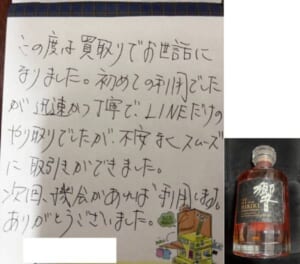 この度は買取りでお世話に
なりました。初めての利用でした
が迅速かつ丁寧で、LINEだけの
やり取りでしたが、不安なくスムーズ
に取引きができました。
次回、機会があれば利用します。
ありがとうございました。
響
21
HIBIKI